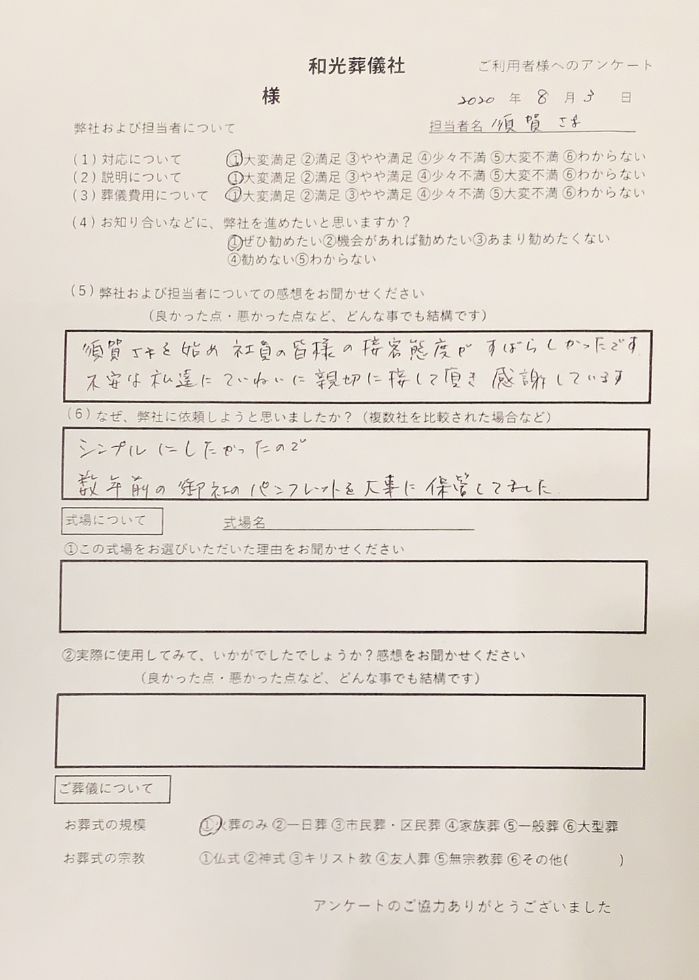 和光葬儀社 ご利用者様へのアンケート
様
2020 年 8 月 3 日
弊社および担当者について 担当者名 須賀さま
(1) 対応について ①大変満足 ②満足 ③やや満足 ④少々不満 ⑤大変不満 ⑥わからない
(2) 説明について ①大変満足 ②満足 ③やや満足 ④少々不満 ⑤大変不満 ⑥わからない
(3) 葬儀費用について ①大変満足 ②満足 ③やや満足 ④少々不満 ⑤大変不満 ⑥わからない
(4) お知り合いなどに、弊社を進めたいと思いますか？
①ぜひ勧めたい②機会があれば勧めたい③あまり勧めたくない
④勧めない⑤わからない
(5) 弊社および担当者についての感想をお聞かせください
（良かった点・悪かった点など、どんな事でも結構です）
須賀さまを始め 社員の皆様の接客態度が すばらしかったです
不安な私達にていねいに親切に接して頂き 感謝しています
(6) なぜ、弊社に依頼しようと思いましたか？（複数社を比較された場合など）
シンプルにしたかったので
数年前の御社のパンフレットを大事に保管してました
式場について 式場名
①この式場をお選びいただいた理由をお聞かせください
②実際に使用してみて、いかがでしたでしょうか？感想をお聞かせください
（良かった点・悪かった点など、どんな事でも結構です）
ご葬儀について
お葬式の規模 ①火葬のみ ②一日葬 ③市民葬・区民葬 ④家族葬 ⑤一般葬 ⑥大型葬
お葬式の宗教 ①仏式 ②神式 ③キリスト教 ④友人葬 ⑤無宗教葬 ⑥その他( )
アンケートのご協力ありがとうございました